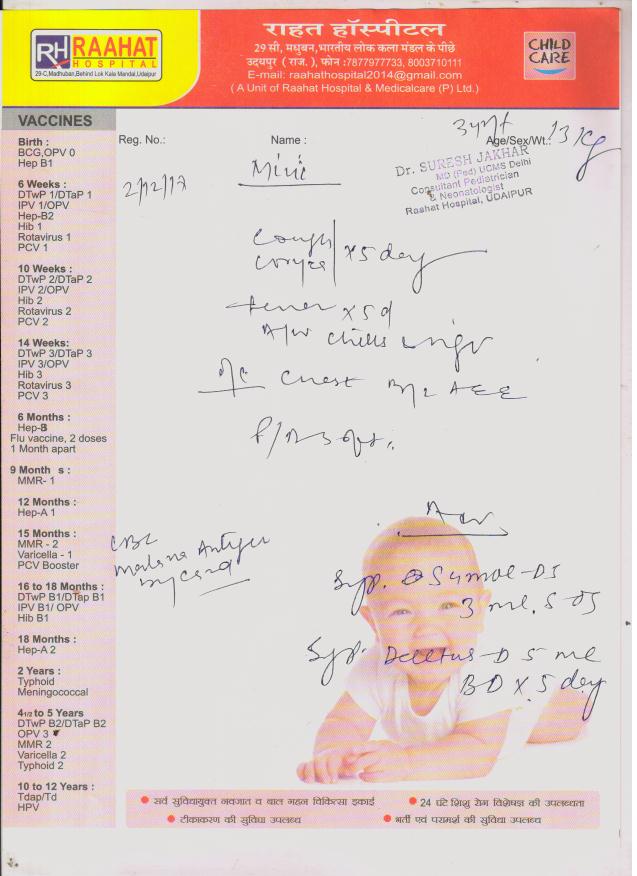 RH RAAHAT
HOSPITAL
29-C,Madhuban,Behind Lok Kala Mandal,Udaipur
राहत हॉस्पीटल
29 सी, मधुबन,भारतीय लोक कला मंडल के पीछे
उदयपुर ( राज. ), फोन :7877977733, 8003710111
E-mail: raahathospital2014@gmail.com
( A Unit of Raahat Hospital & Medicalcare (P) Ltd.)
CHILD
CARE
VACCINES
Birth :
BCG,OPV 0
Hep B1
6 Weeks :
DTwP 1/DTaP 1
IPV 1/OPV
Hep-B2
Hib 1
Rotavirus 1
PCV 1
10 Weeks :
DTwP 2/DTaP 2
IPV 2/OPV
Hib 2
Rotavirus 2
PCV 2
14 Weeks:
DTwP 3/DTaP 3
IPV 3/OPV
Hib 3
Rotavirus 3
PCV 3
6 Months :
Hep-B
Flu vaccine, 2 doses
1 Month apart
9 Month s :
MMR- 1
12 Months :
Hep-A 1
15 Months :
MMR - 2
Varicella - 1
PCV Booster
16 to 18 Months :
DTwP B1/DTap B1
IPV B1/ OPV
Hib B1
18 Months :
Hep-A 2
2 Years :
Typhoid
Meningococcal
4 1/2 to 5 Years
DTwP B2/DTaP B2
OPV 3
MMR 2
Varicella 2
Typhoid 2
10 to 12 Years :
Tdap/Td
HPV
Reg. No.: Name : Age/Sex/Wt.: 13 kg
Dr. SURESH JAKHAR
MD (Ped) UCMS Delhi
Consultant Pediatrician
& Neonatologist
Raahat Hospital, UDAIPUR
2/12/17
cough
coryza x 5 day
fever x 5d
A/W chills
O/E Chest B/L AEE
P/A soft.
CBC
Malaria Antigen
by card
Adv
Syp. DS
3 ml
Syp. D 5 ml
BD x 5 day
सर्व सुविधायुक्त नवजात व बाल गहन चिकित्सा इकाई
24 घंटे शिशु रोग विशेषज्ञ की उपलब्धता
टीकाकरण की सुविधा उपलब्ध
भर्ती एवं परामर्श की सुविधा उपलब्ध